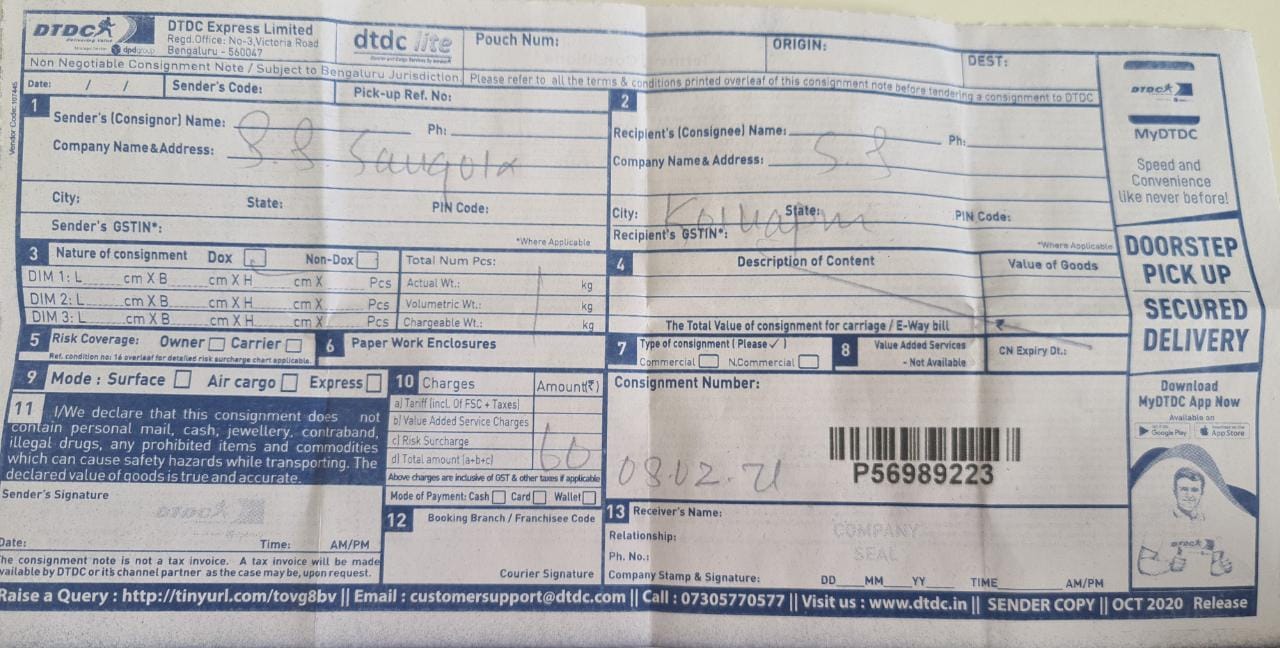 DTDC
Delivering Value
dpdgroup
DTDC Express Limited
Regd.Office: No-3,Victoria Road
Bengaluru - 560047
dtdc lite
Pouch Num:
ORIGIN:
DEST:
Non Negotiable Consignment Note / Subject to Bengaluru Jurisdiction. Please refer to all the terms & conditions printed overleaf of this consignment note before tendering a consignment to DTDC
Date: / /
Sender's Code:
Pick-up Ref. No:
1
Sender's (Consignor) Name:
Ph:
Company Name & Address:
S.S. Sangola
City:
State:
PIN Code:
Sender's GSTIN*:
*Where Applicable
2
Recipient's (Consignee) Name:
Ph:
Company Name & Address:
S.S
City:
State:
PIN Code:
Recipient's GSTIN*:
*Where Applicable
3 Nature of consignment Dox Non-Dox
DIM 1: L cm X B cm X H cm X Pcs
DIM 2: L cm X B cm X H cm X Pcs
DIM 3: L cm X B cm X H cm X Pcs
Total Num Pcs:
Actual Wt.: kg
Volumetric Wt.: kg
Chargeable Wt.: kg
4 Description of Content
Value of Goods
The Total Value of consignment for carriage / E-Way bill ₹
5 Risk Coverage: Owner Carrier
Ref. condition no: 16 overleaf for detailed risk surcharge chart applicable.
6 Paper Work Enclosures
7 Type of consignment (Please ✓)
Commercial N.Commercial
8 Value Added Services
- Not Available
CN Expiry Dt.:
9 Mode : Surface Air cargo Express
10 Charges Amount(₹)
a) Tariff (incl. Of FSC + Taxes)
b) Value Added Service Charges
c) Risk Surcharge
d) Total amount (a+b+c)
60
Above charges are inclusive of GST & other taxes if applicable
Mode of Payment: Cash Card Wallet
11 I/We declare that this consignment does not
contain personal mail, cash, jewellery, contraband,
illegal drugs, any prohibited items and commodities
which can cause safety hazards while transporting. The
declared value of goods is true and accurate.
Sender's Signature
DTDC
Date: Time: AM/PM
The consignment note is not a tax invoice. A tax invoice will be made
available by DTDC or its channel partner as the case may be, upon request.
12 Booking Branch / Franchisee Code
Courier Signature
Consignment Number:
P56989223
08.02.21
13 Receiver's Name:
Relationship:
Ph. No.:
Company Stamp & Signature:
COMPANY
SEAL
DD MM YY TIME AM/PM
DTDC
MyDTDC
Speed and
Convenience
like never before!
DOORSTEP
PICK UP
SECURED
DELIVERY
Download
MyDTDC App Now
Available on
Google Play
App Store
DTDC
Raise a Query : http://tinyurl.com/tovg8bv || Email : customersupport@dtdc.com || Call : 07305770577 || Visit us : www.dtdc.in || SENDER COPY || OCT 2020 Release
Vendor Code: 107446